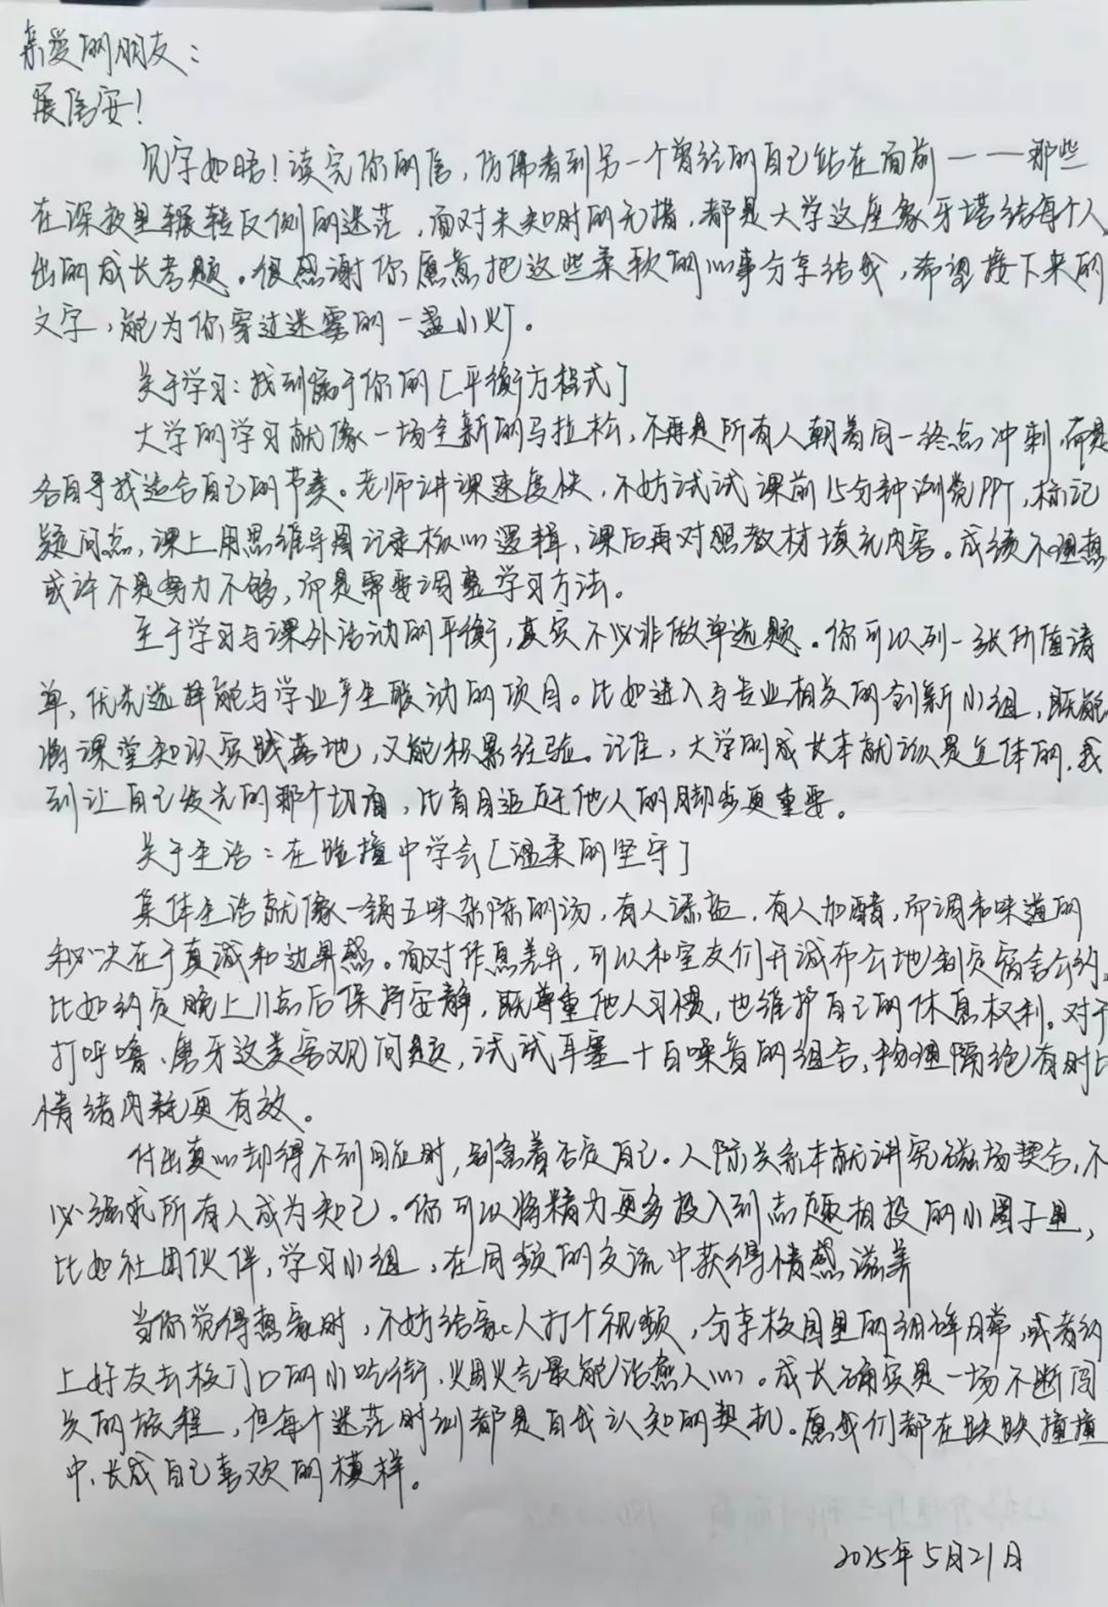 亲爱的朋友：
展信安！
见字如晤！读完你的信，仿佛看到另一个曾经的自己站在面前——那些
在深夜里辗转反侧的迷茫，面对未知时的无措，都是大学这座象牙塔给每个人
出的成长考题。很感谢你愿意把这些柔软的心事分享给我，希望接下来的
文字，能为你穿过迷雾的一盏小灯。
关于学习：找到属于你的[平衡方程式]
大学的学习就像一场全新的马拉松，不再是所有人朝着同一终点冲刺，而是
各自寻找适合自己的节奏。老师讲课速度快，不妨试试课前15分钟浏览PPT，标记
疑问点，课上用思维导图记录核心逻辑，课后再对照教材填充内容。成绩不理想
或许不是努力不够，而是需要调整学习方法。
至于学习与课外活动的平衡，其实不必非做单选题。你可以列一张价值清
单，优先选择能与学业产生联动的项目。比如进入与专业相关的创新小组，既能
将课堂知识实践落地，又能积累经验。记住，大学的成长本就该是立体的，找
到让自己发光的那个切面，比盲目追赶他人的脚步更重要。
关于生活：在碰撞中学会[温柔的坚守]
集体生活就像一锅五味杂陈的汤，有人添盐，有人加醋，而调和味道的
秘诀在于真诚和边界感。面对作息差异，可以和室友们开诚布公地制定宿舍公约，
比如约定晚上11点后保持安静，既尊重他人习惯，也维护自己的休息权利。对于
打呼噜、磨牙这类客观问题，试试耳塞+白噪音的组合，物理隔绝有时比
情绪内耗更有效。
付出真心却得不到回应时，别急着否定自己。人际关系本就讲究磁场契合，不
必强求所有人成为知己。你可以将精力更多投入到志趣相投的小圈子里，
比如社团伙伴，学习小组，在同频的交流中获得情感滋养
当你觉得想家时，不妨给家人打个视频，分享校园里的细碎日常，或者约
上好友去校门口的小吃街，烟火气最能治愈人心。成长确实是一场不断闯
关的旅程，但每个迷茫时刻都是自我认知的契机。愿我们都在跌跌撞撞
中，长成自己喜欢的模样。
2025年5月21日